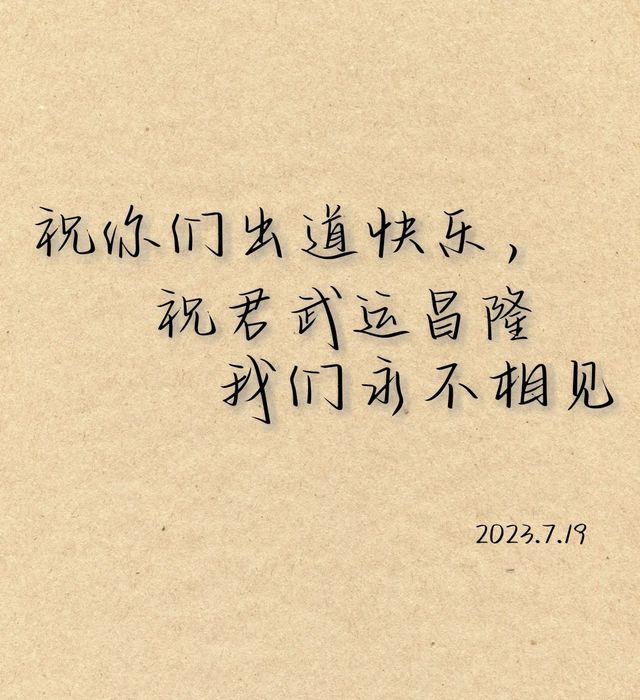 祝你们出道快乐，
祝君武运昌隆
我们永不相见
2023.7.19